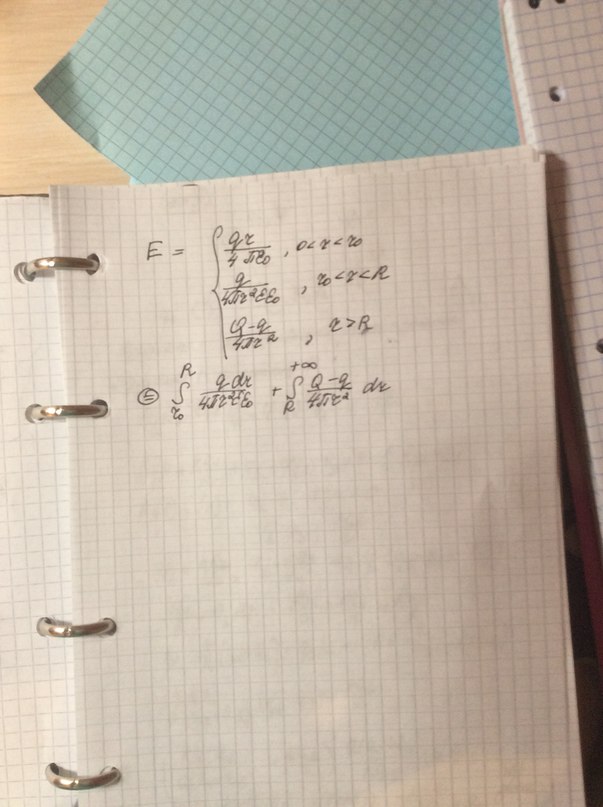 E = { qr / 4πε₀ , 0<r<r₀
q / 4πr²εε₀ , r₀<r<R
Q-q / 4πr² , r>R
⊜ ∫_{r₀}^{R} q dr / 4πr²εε₀ + ∫_{R}^{+∞} Q-q / 4πr² dr